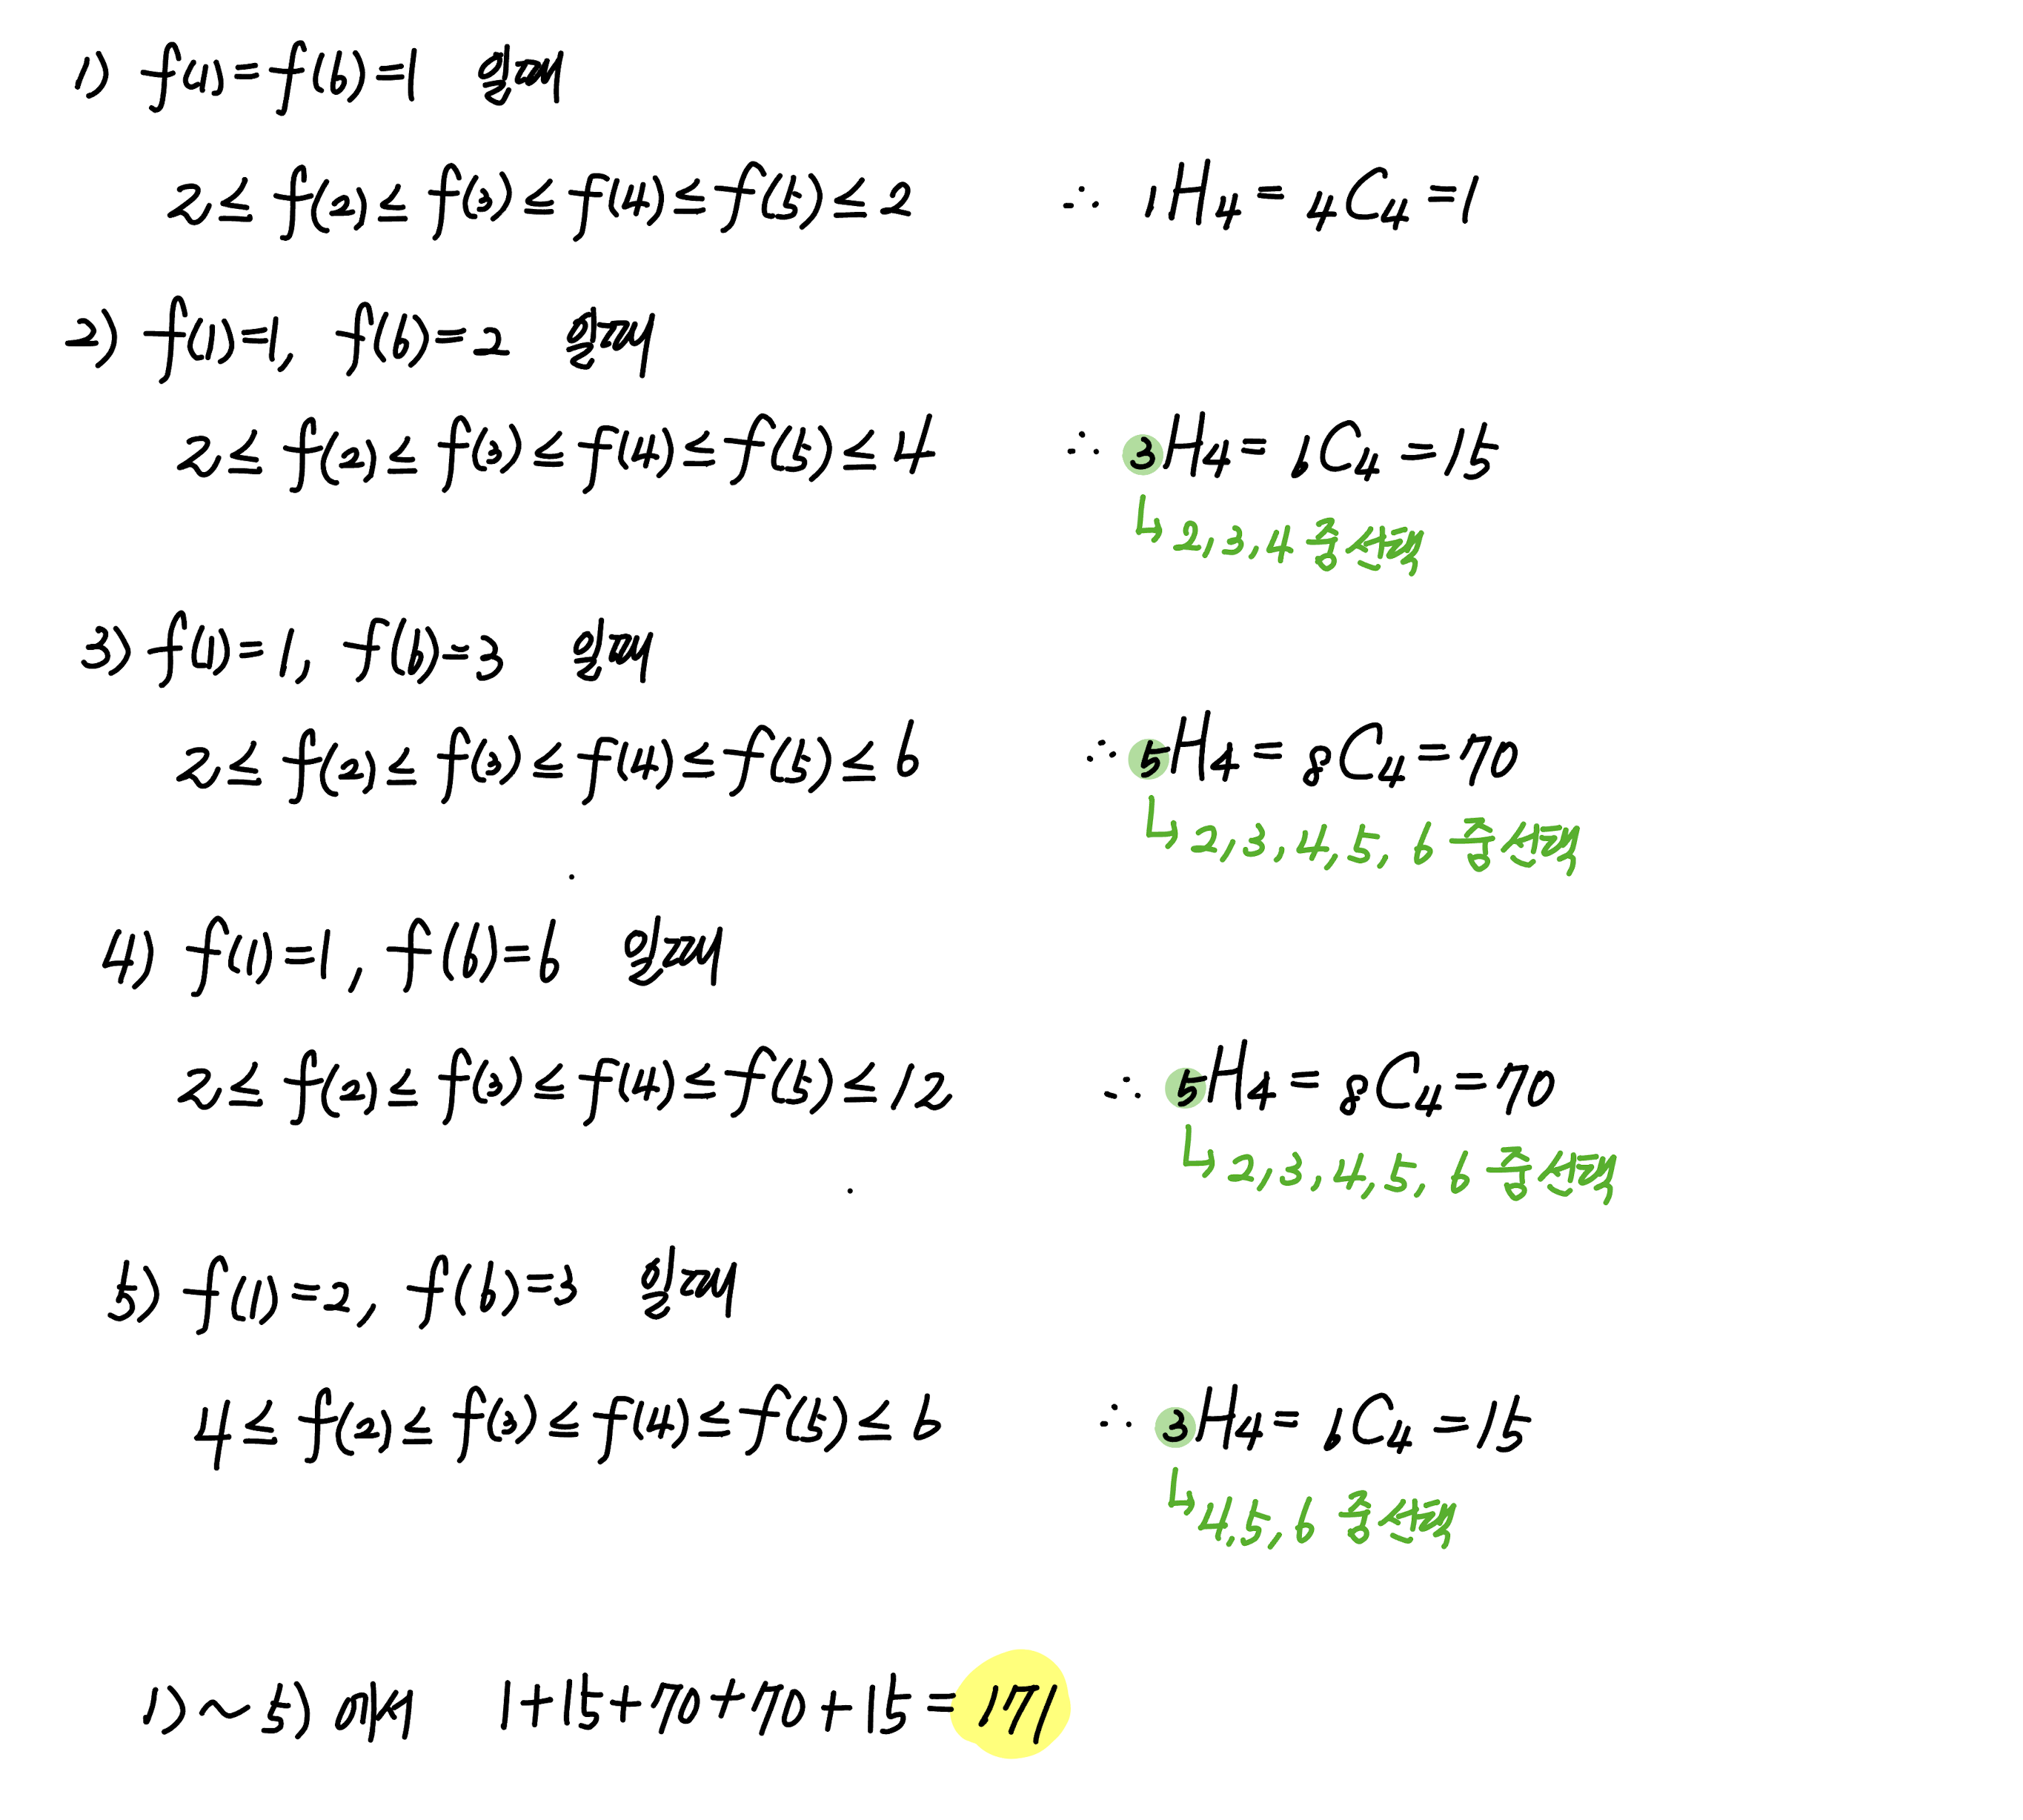 1) f(1)=f(6)=1 일 때
2≤f(2)≤f(3)≤f(4)≤f(5)≤2 ∴ ₁H₄=₄C₄=1
2) f(1)=1, f(6)=2 일 때
2≤f(2)≤f(3)≤f(4)≤f(5)≤4 ∴ ₃H₄=₆C₄=15
↳ 2, 3, 4 중 선택
3) f(1)=1, f(6)=3 일 때
2≤f(2)≤f(3)≤f(4)≤f(5)≤6 ∴ ₅H₄=₈C₄=70
↳ 2, 3, 4, 5, 6 중 선택
4) f(1)=1, f(6)=6 일 때
2≤f(2)≤f(3)≤f(4)≤f(5)≤12 ∴ ₅H₄=₈C₄=70
↳ 2, 3, 4, 5, 6 중 선택
5) f(1)=2, f(6)=3 일 때
4≤f(2)≤f(3)≤f(4)≤f(5)≤6 ∴ ₃H₄=₆C₄=15
↳ 4, 5, 6 중 선택
1)~5)에서 1+15+70+70+15=171